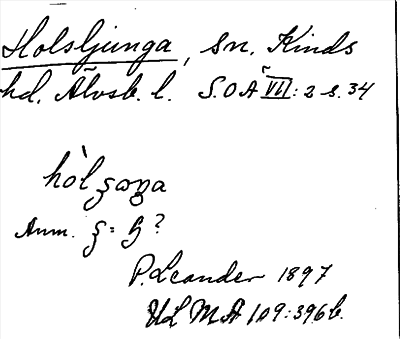 Holsljunga, sn. Kinds
hd. Älvsb. l. S.O.Ä VII: 2 s. 34
hòl
Anm. = ?
P. Leander 1897
ULMA 109:396 b.